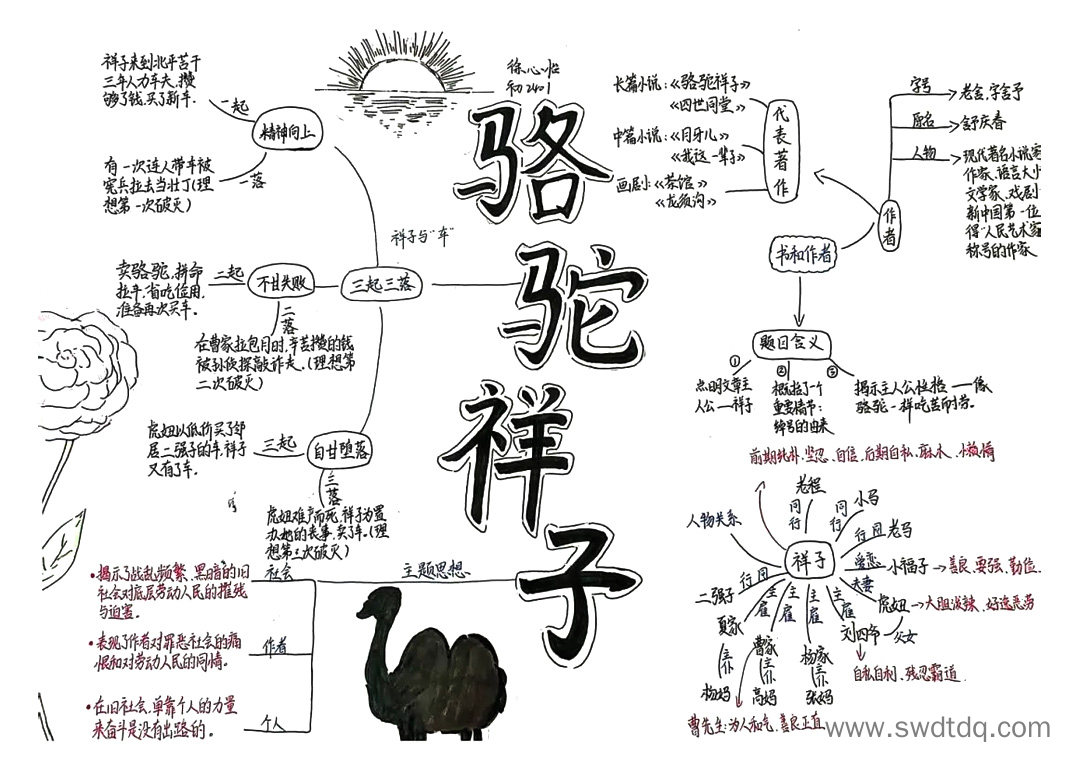 骆驼祥子
徐心怡
初2401
祥子来到北平苦干
三年人力车夫,攒
够了钱,买了新车.
一起
精神向上
一落
有一次连人带车被
宪兵拉去当壮丁(理
想第一次破灭)
祥子与"车"
三起三落
卖骆驼,拼命
拉车,省吃俭用,
准备再次买车.
二起
不甘失败
二落
在曹家拉包月时,辛苦攒的钱
被孙侦探敲诈去.(理想第
二次破灭)
虎妞以低价买了邻
居二强子的车,祥子
又有了车.
三起
自甘堕落
三落
虎妞难产而死,祥子为置
办她的丧事,卖了车.(理
想第三次破灭)
主题思想
社会
•揭示了战乱频繁、黑暗的旧
社会对底层劳动人民的摧残
与迫害.
作者
•表现了作者对罪恶社会的痛
恨和对劳动人民的同情。
个人
•在旧社会,单靠个人的力量
来奋斗是没有出路的。
长篇小说:《骆驼祥子》
《四世同堂》
中篇小说:《月牙儿》
《我这一辈子》
画剧:《茶馆》
《龙须沟》
代表著作
字号
老舍,字舍予
原名
舒庆春
人物
现代著名小说家
作家、语言大小
文学家、戏剧
新中国第一位
得"人民艺术家
称号的作家
作者
书和作者
题目含义
①
点明文章主
人公—祥子
②
概括了一个
重要情节:
绰号的由来
③
揭示主人公性格—像
骆驼一样吃苦而耐劳.
前期纯朴、坚忍、自信、后期自私、麻木、小懒惰
人物关系
祥子
同行
老程
同行
小马
同行
老马
爱恋
小福子
善良、要强、勤俭.
夫妻
虎妞
大胆泼辣、好逸恶劳
父女
主雇
刘四爷
自私自利、残忍霸道.
主雇
杨家
主仆
张妈
主雇
曹家
主仆
高妈
主雇
夏家
主仆
杨妈
同行
二强子
曹先生:为人和气、善良正直
www.swdtdq.com